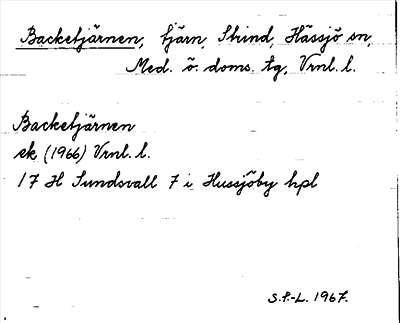 Backetjärnen, tjärn, Strind, Hässjö sn,
Med. ö. doms. tg, Vrnl. l.
Backetjärnen
ek (1966) Vrnl. l.
17 H Sundsvall 7 i Hussjöby hpl
S.F.-L. 1967.